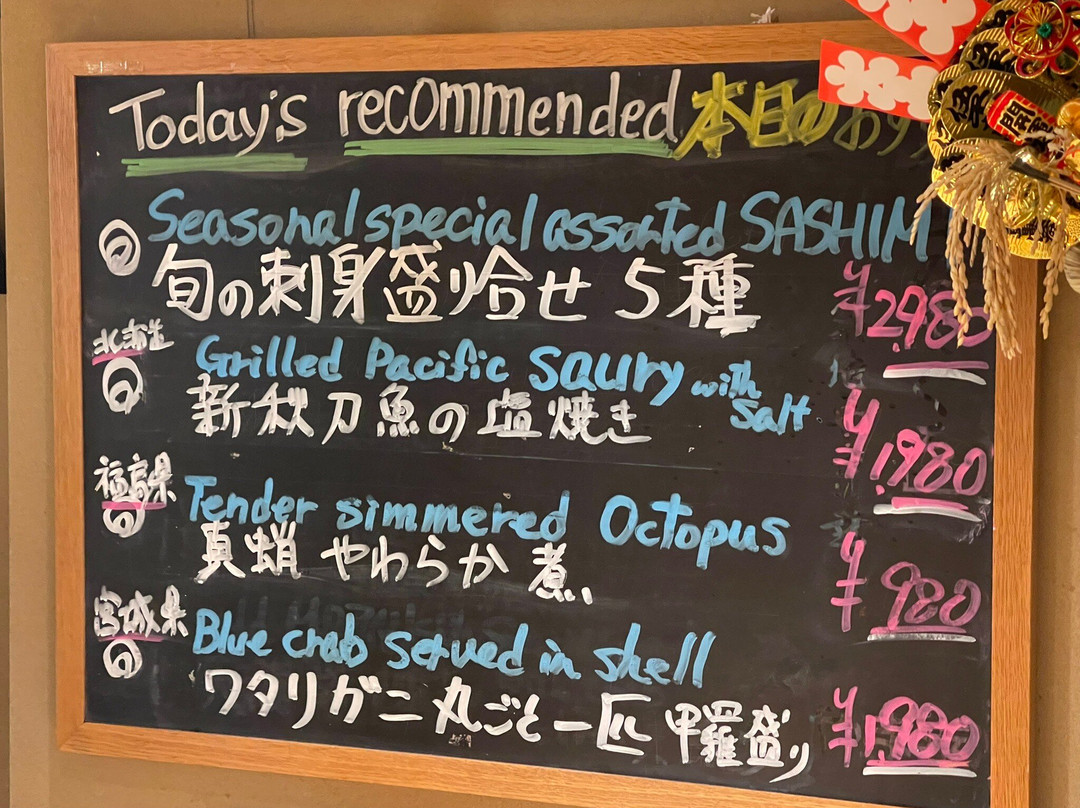 Today's recommended 本日のおす
Seasonal special assorted SASHIM
旬の刺身盛り合せ 5種
¥2,980
北海道
Grilled Pacific Saury with Salt
新秋刀魚の塩焼き
¥1,980
福島県
Tender simmered Octopus
真蛸 やわらか煮
¥980
宮城県
Blue crab served in shell
ワタリガニ丸ごと一匹 甲羅盛り
¥1,980